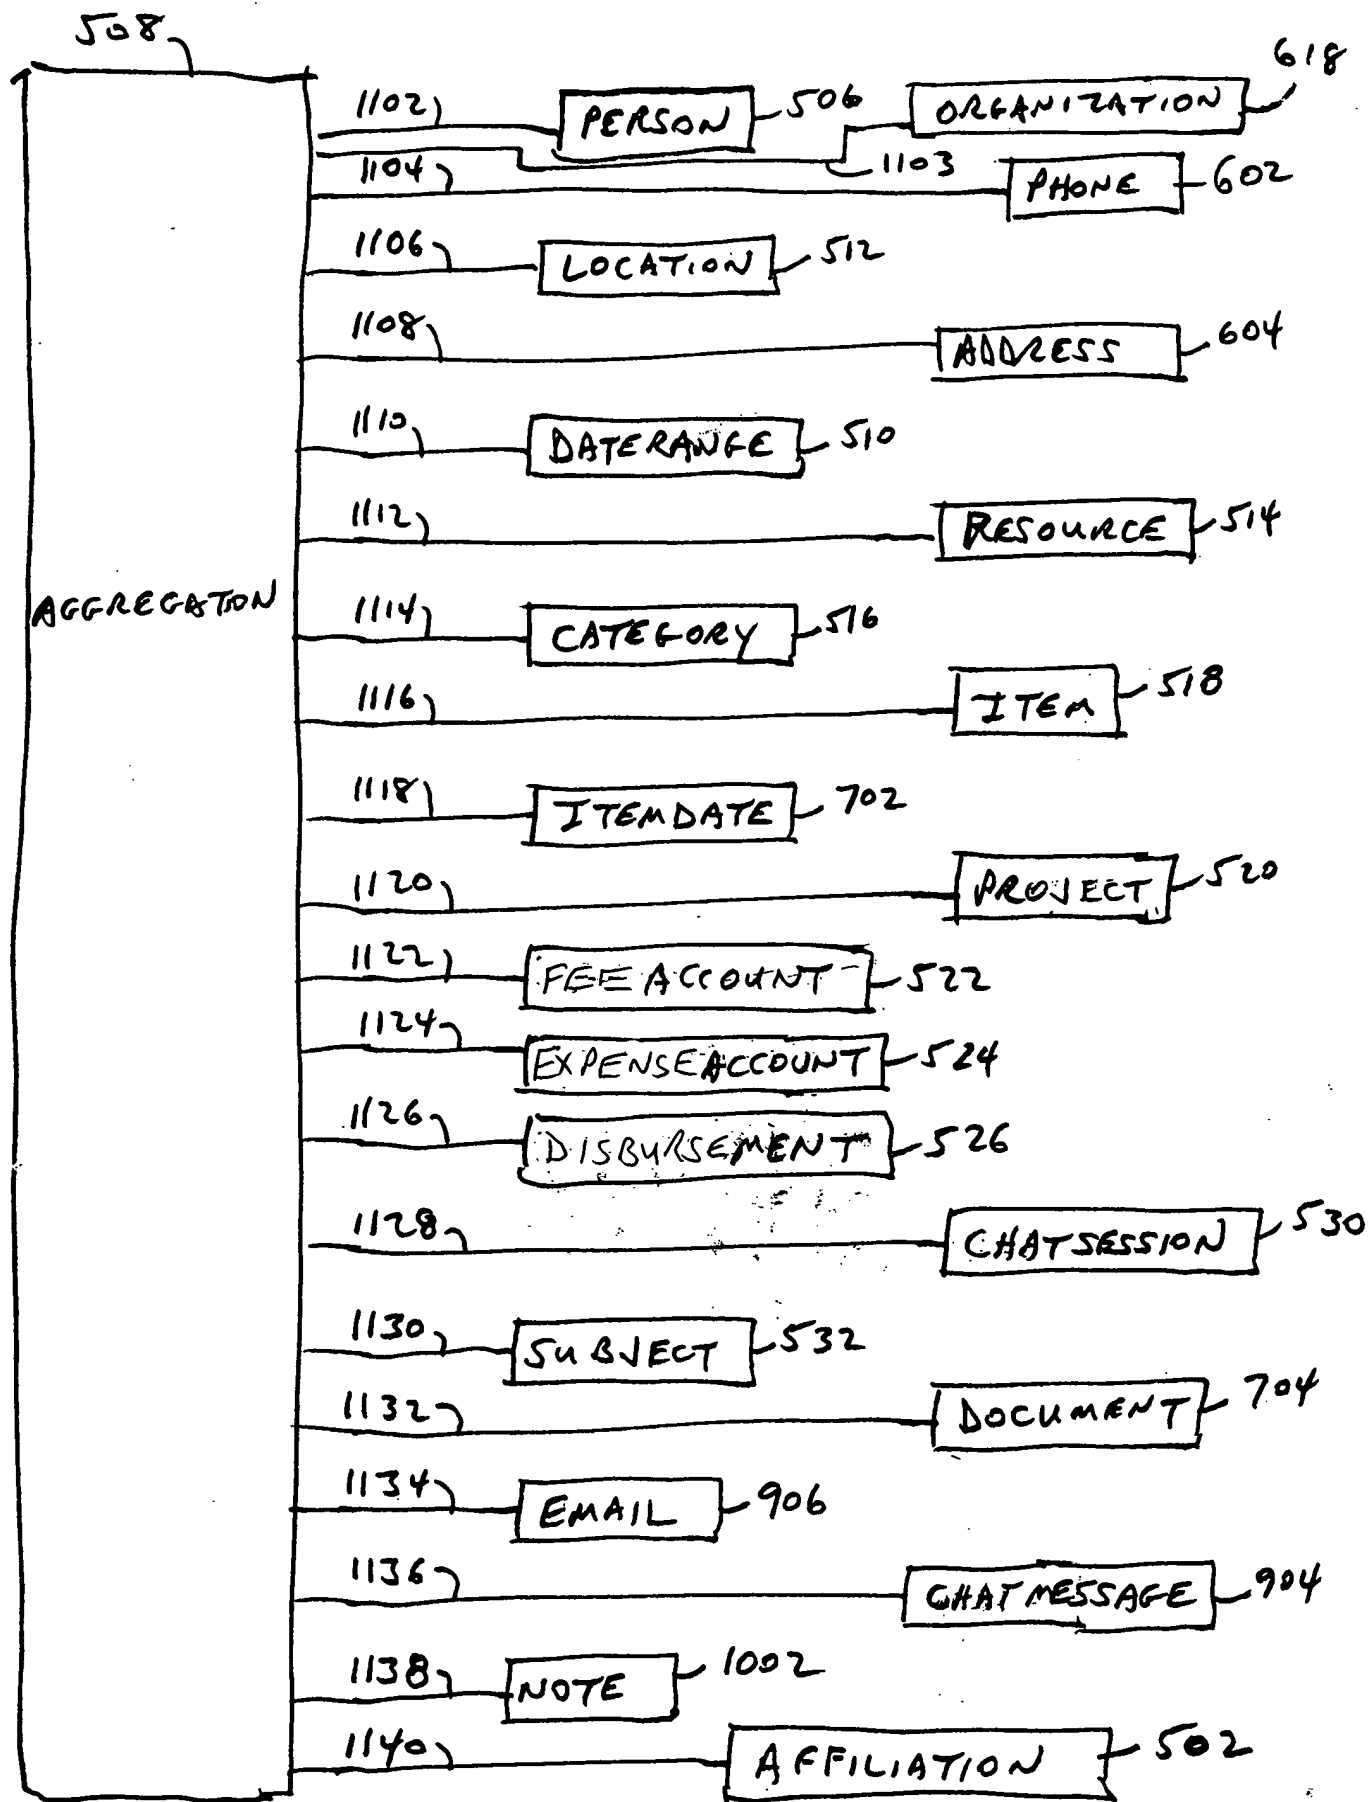 508
618
1102 PERSON 506 ORGANIZATION
1104 1103 PHONE 602
1106 LOCATION 512
1108 ADDRESS 604
1110 DATERANGE 510
1112 RESOURCE 514
AGGREGATION
1114 CATEGORY 516
1116 ITEM 518
1118 ITEMDATE 702
1120 PROJECT 520
1122 FEE ACCOUNT 522
1124 EXPENSEACCOUNT 524
1126 DISBURSEMENT 526
1128 CHATSESSION 530
1130 SUBJECT 532
1132 DOCUMENT 704
1134 EMAIL 906
1136 CHATMESSAGE 904
1138 NOTE 1002
1140 AFFILIATION 502